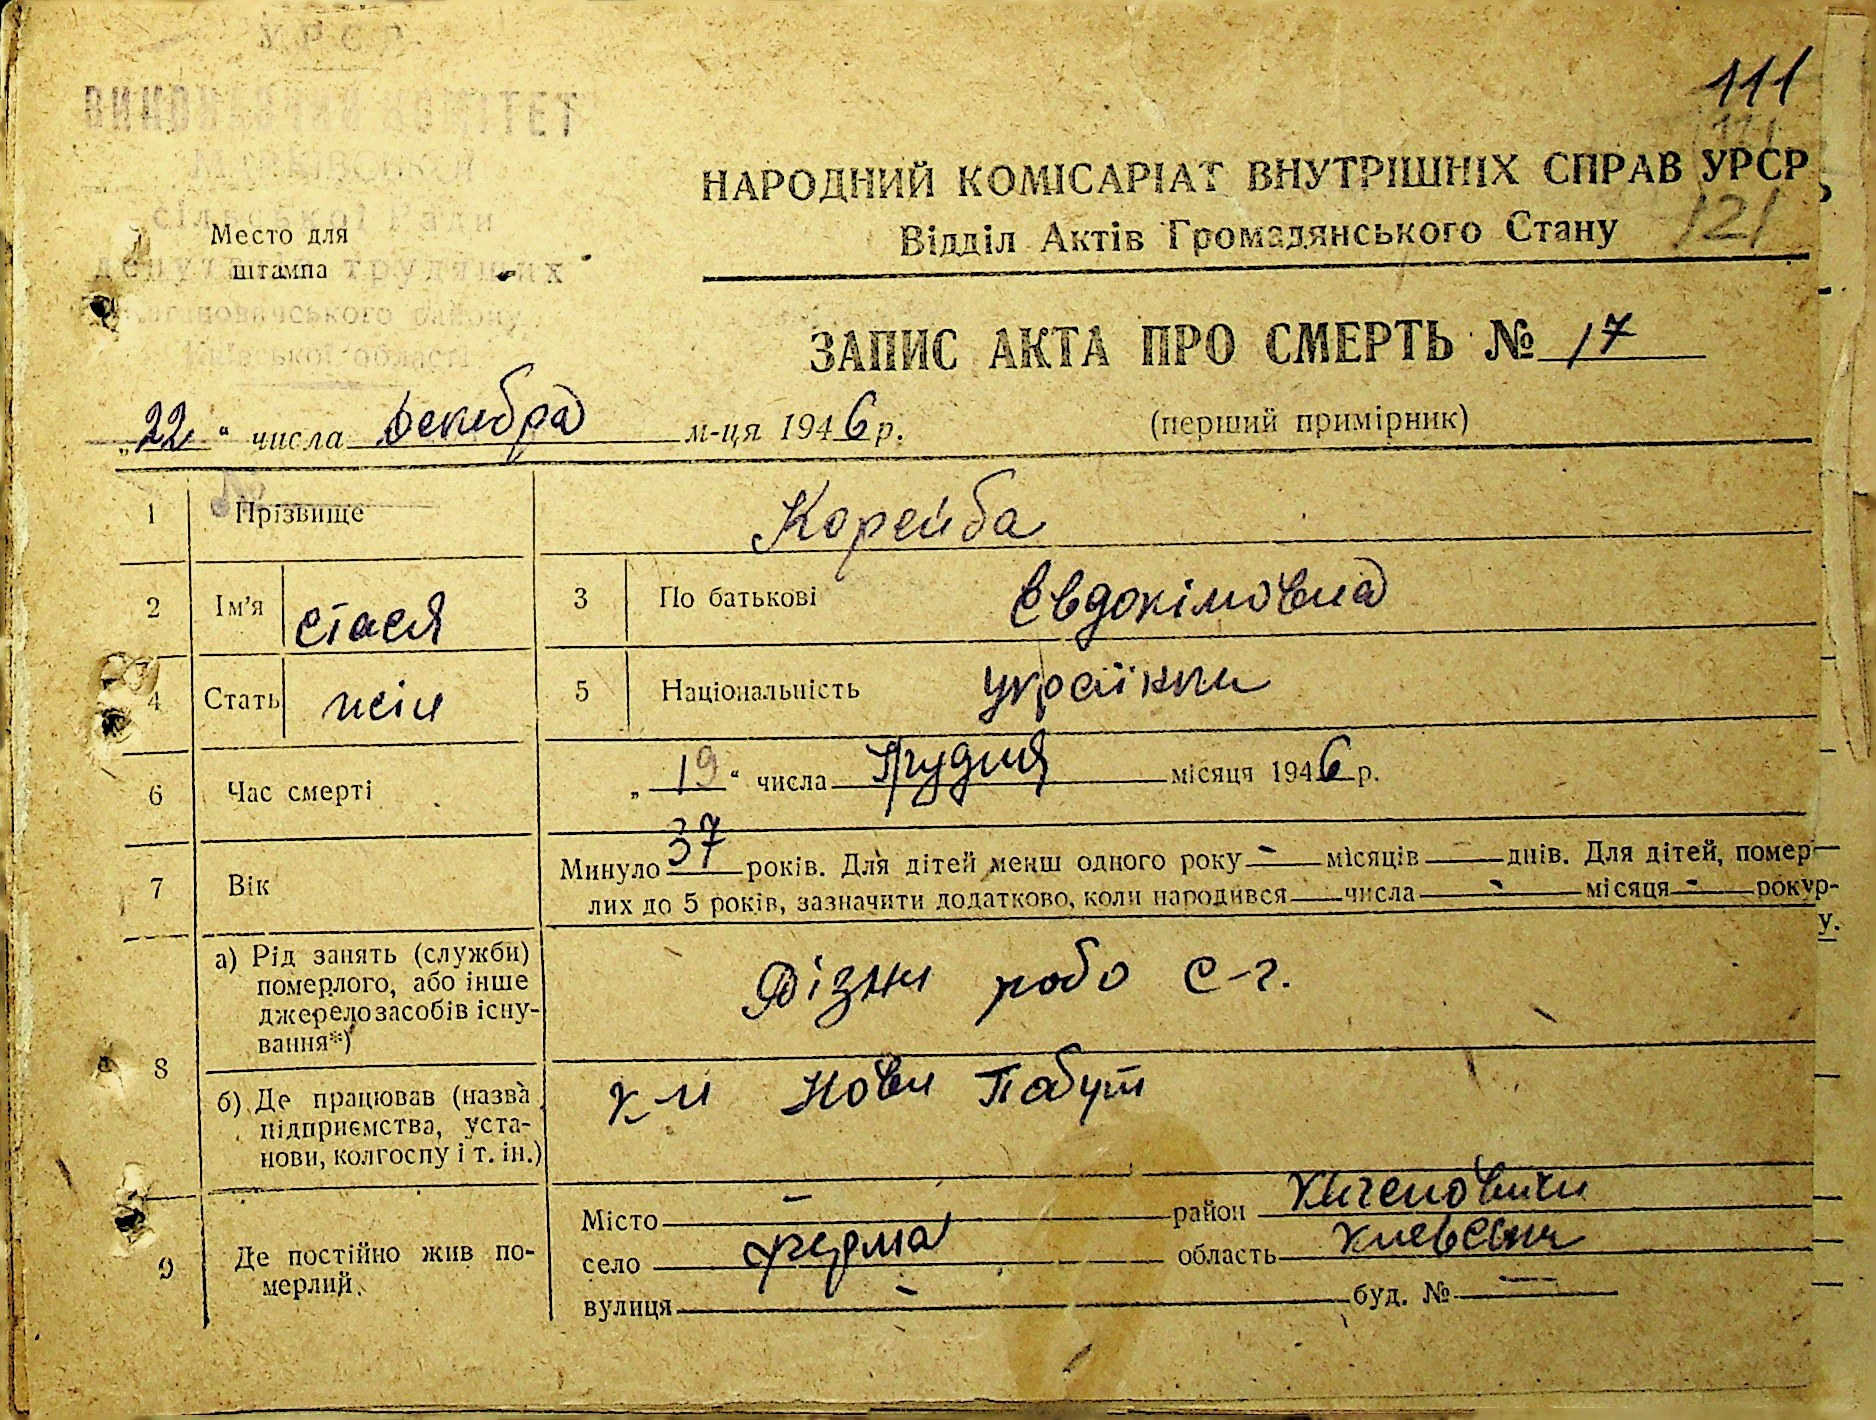 УРСР
ВИКОНАВЧИЙ КОМІТЕТ
сільської Ради
депутатів трудящих
району
Київської області
111
111
121
НАРОДНИЙ КОМІСАРІАТ ВНУТРІШНІХ СПРАВ УРСР
Відділ Актів Громадянського Стану
Место для
штампа
ЗАПИС АКТА ПРО СМЕРТЬ № 17
„22“ числа декабра м-ця 1946 р.
(перший примірник)
1 Прізвище Корейба
2 Ім'я Стася 3 По батькові Євдокімовна
4 Стать жін 5 Національність українки
6 Час смерті „19“ числа Грудня місяця 1946 р.
7 Вік Минуло 37 років. Для дітей менш одного року - місяців днів. Для дітей, помер-
лих до 5 років, зазначити додатково, коли народився числа - місяця - року р-
у.
8 а) Рід занять (служби)
померлого, або інше
джерело засобів існу-
вання*)
Візни робо с-г.
б) Де працював (назва
підприємства, уста-
нови, колгоспу і т. ін.)
к-и Нови Побут
9 Де постійно жив по-
мерлий.
Місто - район
село ферма область Киевскои
вулиця - буд. № —